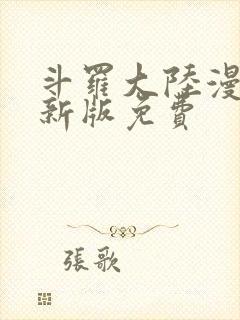 斗羅大陸漫
新版免費
張歌